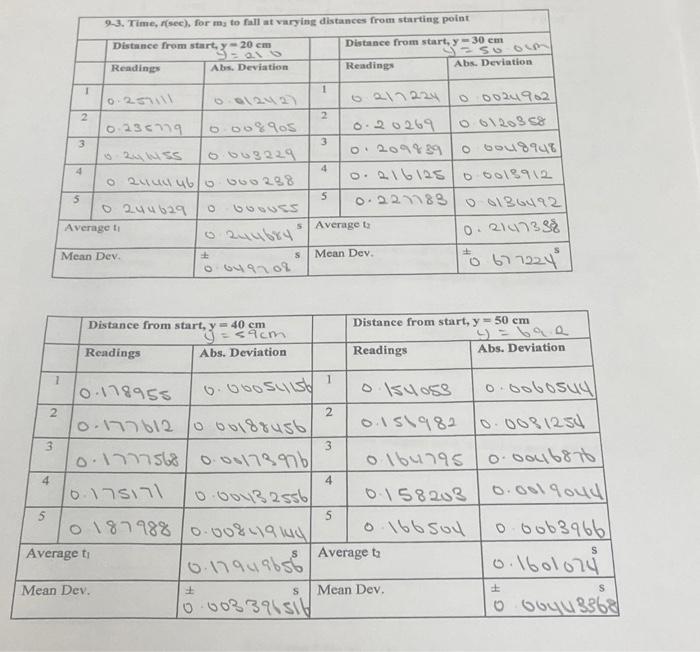 9-3. Time, t(sec), for m₂ to fall at varying distances from starting point
Distance from start, y = 20 cm
y = 21.0
Distance from start, y = 30 cm
y = 50.0cm
Readings Abs. Deviation Readings Abs. Deviation
1 0.257111 0.012427 1 0.217224 0.0024902
2 0.235779 0.008905 2 0.20269 0.0120358
3 0.241455 0.003229 3 0.209839 0.0048948
4 0.244446 0.000238 4 0.216125 0.0013912
5 0.244629 0.000055 5 0.227783 0.0130492
Average t₁ 0.244684 s Average t₂ 0.2147338 s
Mean Dev. ± 0.049708 s Mean Dev. ± 0.677224 s
Distance from start, y = 40 cm
y = 59cm
Distance from start, y = 50 cm
y = 69.2
Readings Abs. Deviation Readings Abs. Deviation
1 0.178955 0.00054156 1 0.154053 0.0060544
2 0.177612 0.00188456 2 0.156982 0.0031254
3 0.1777568 0.00173976 3 0.164795 0.0046876
4 0.175171 0.00432556 4 0.158203 0.0019044
5 0.187988 0.00849144 5 0.166504 0.0063966
Average t₁ 0.17949656 s Average t₂ 0.1601074 s
Mean Dev. ± 0.003396516 s Mean Dev. ± 0.00443368 s